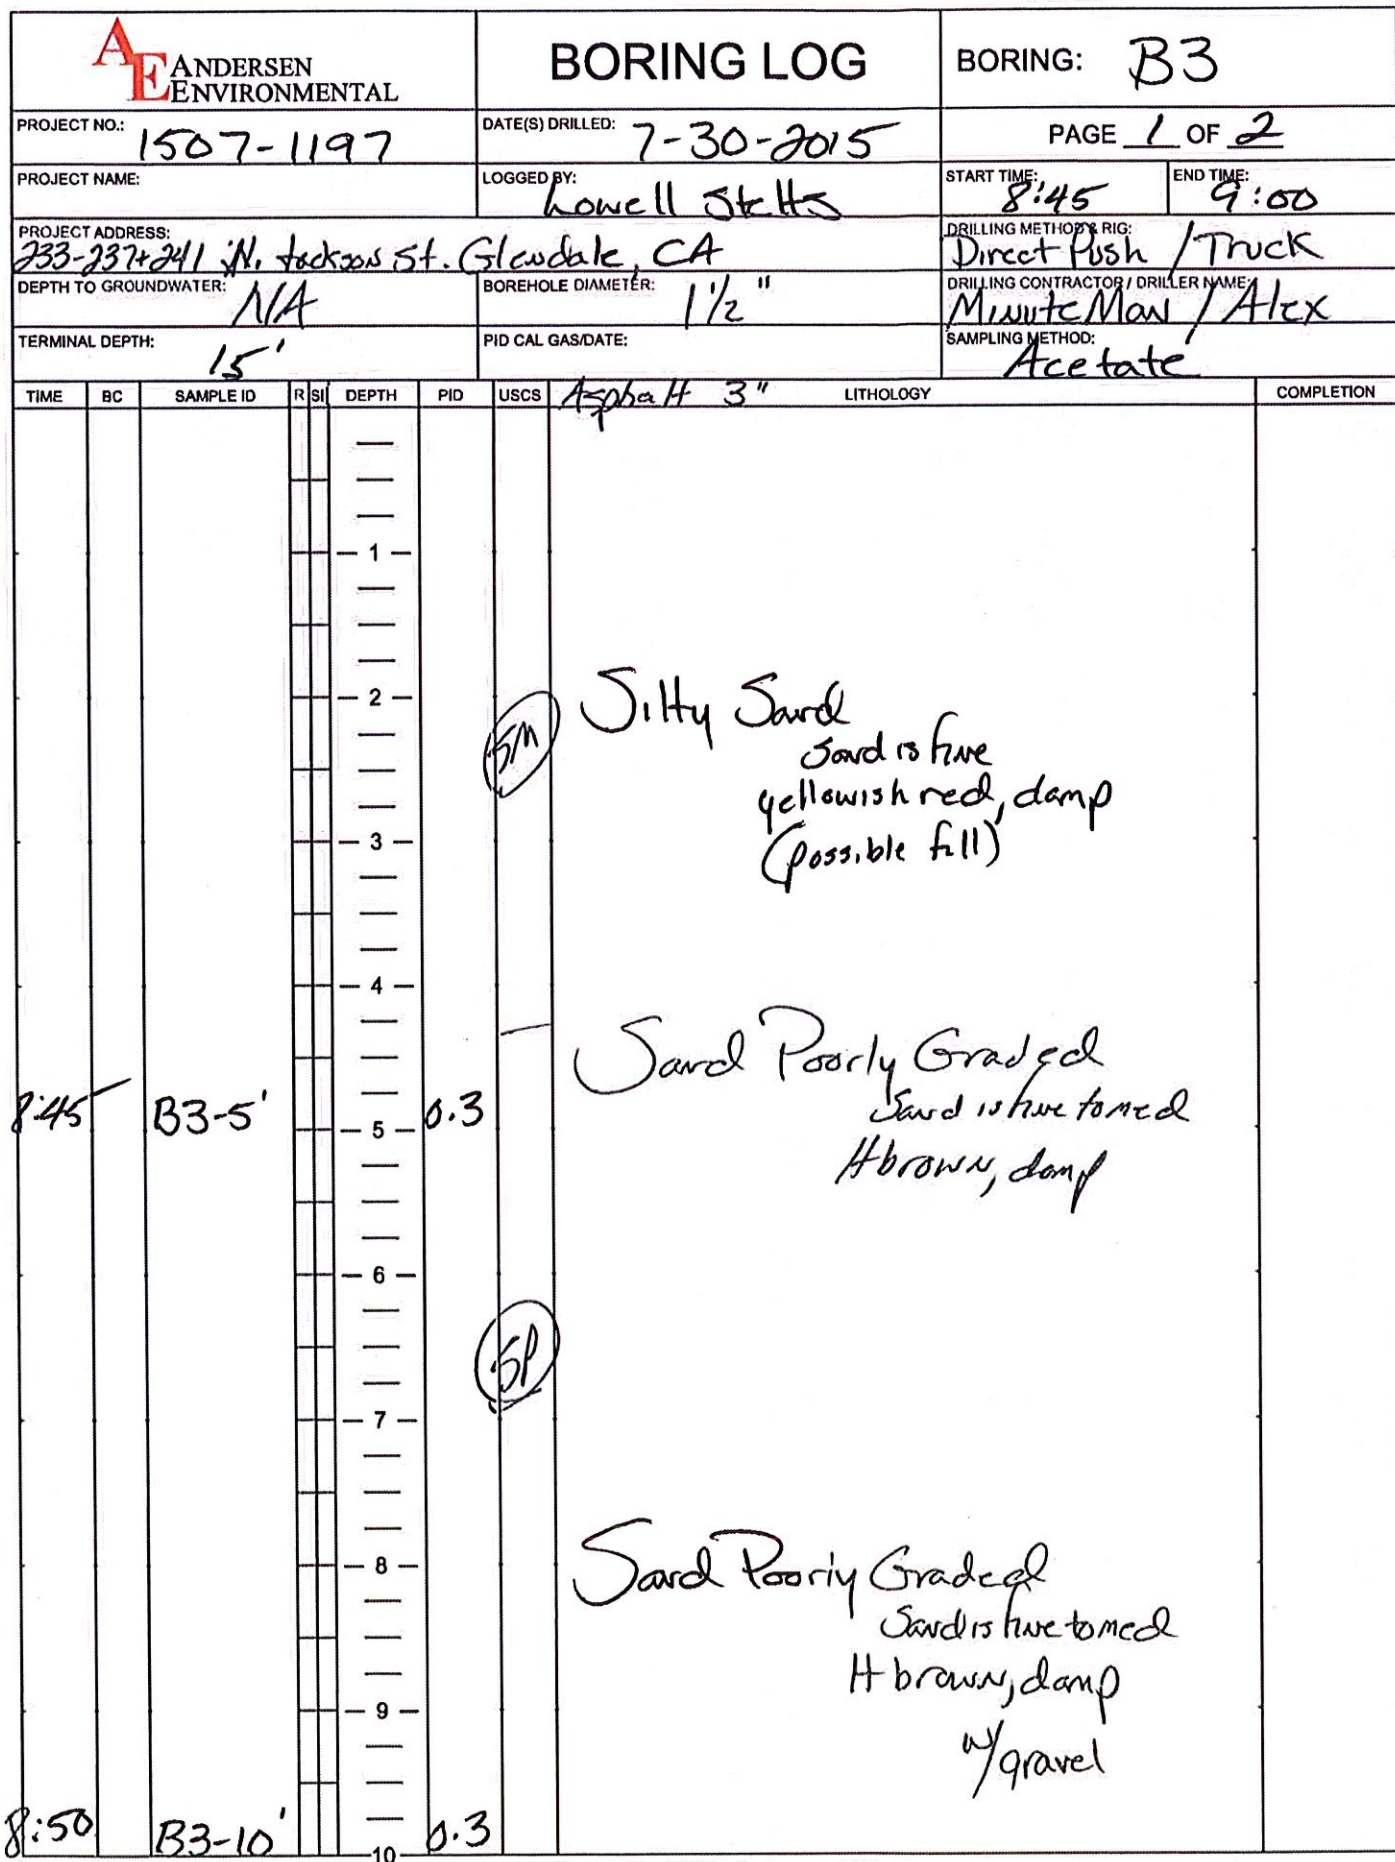 AE ANDERSEN
ENVIRONMENTAL
BORING LOG
BORING: B3
PROJECT NO.: 1507-1197
DATE(S) DRILLED: 7-30-2015
PAGE 1 OF 2
PROJECT NAME:
LOGGED BY: Lowell Stelts
START TIME: 8:45
END TIME: 9:00
PROJECT ADDRESS:
233-237+241 N. Jackson St. Glendale, CA
DRILLING METHOD & RIG:
Direct Push / Truck
DEPTH TO GROUNDWATER: N/A
BOREHOLE DIAMETER: 1 1/2"
DRILLING CONTRACTOR / DRILLER NAME:
MinuteMan / Alex
TERMINAL DEPTH: 15'
PID CAL GAS/DATE:
SAMPLING METHOD:
Acetate
TIME BC SAMPLE ID R SI DEPTH PID USCS Asphalt 3" LITHOLOGY COMPLETION
1
2
SM
Silty Sand
Sand is fine
yellowish red, damp
(possible fill)
3
4
Sand Poorly Graded
Sand is fine to med
8:45 B3-5' 5 0.3
lt brown, damp
6
SP
7
8
Sand Poorly Graded
Sand is fine to med
lt brown, damp
9
w/gravel
8:50 B3-10' 10 0.3